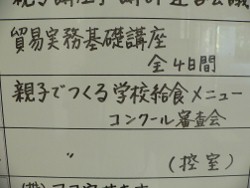 貿易実務基礎講座
全4日間
親子でつくる学校給食メニュー
コンクール審査会
〃
(控室)